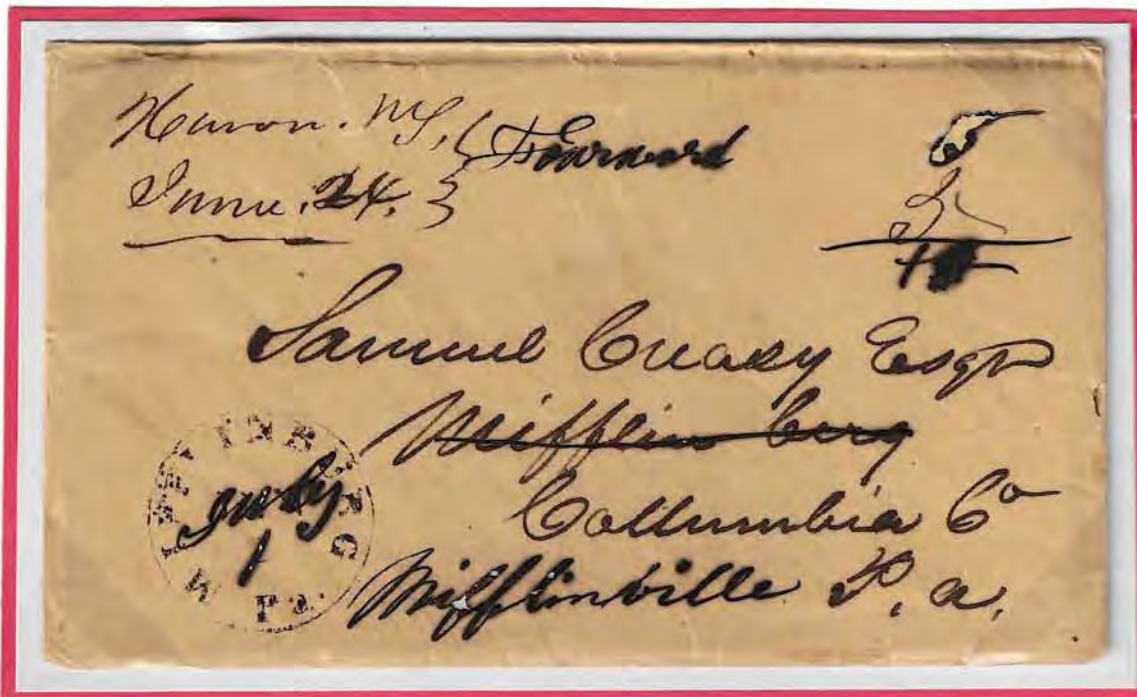 Huron. N.Y.
June. 24.
Forward
5
5
10
Samuel Creasy Esqr
Mifflinburg
Collumbia Co
Mifflinville P.a.
MIFFLINBURG Pa.
July
1